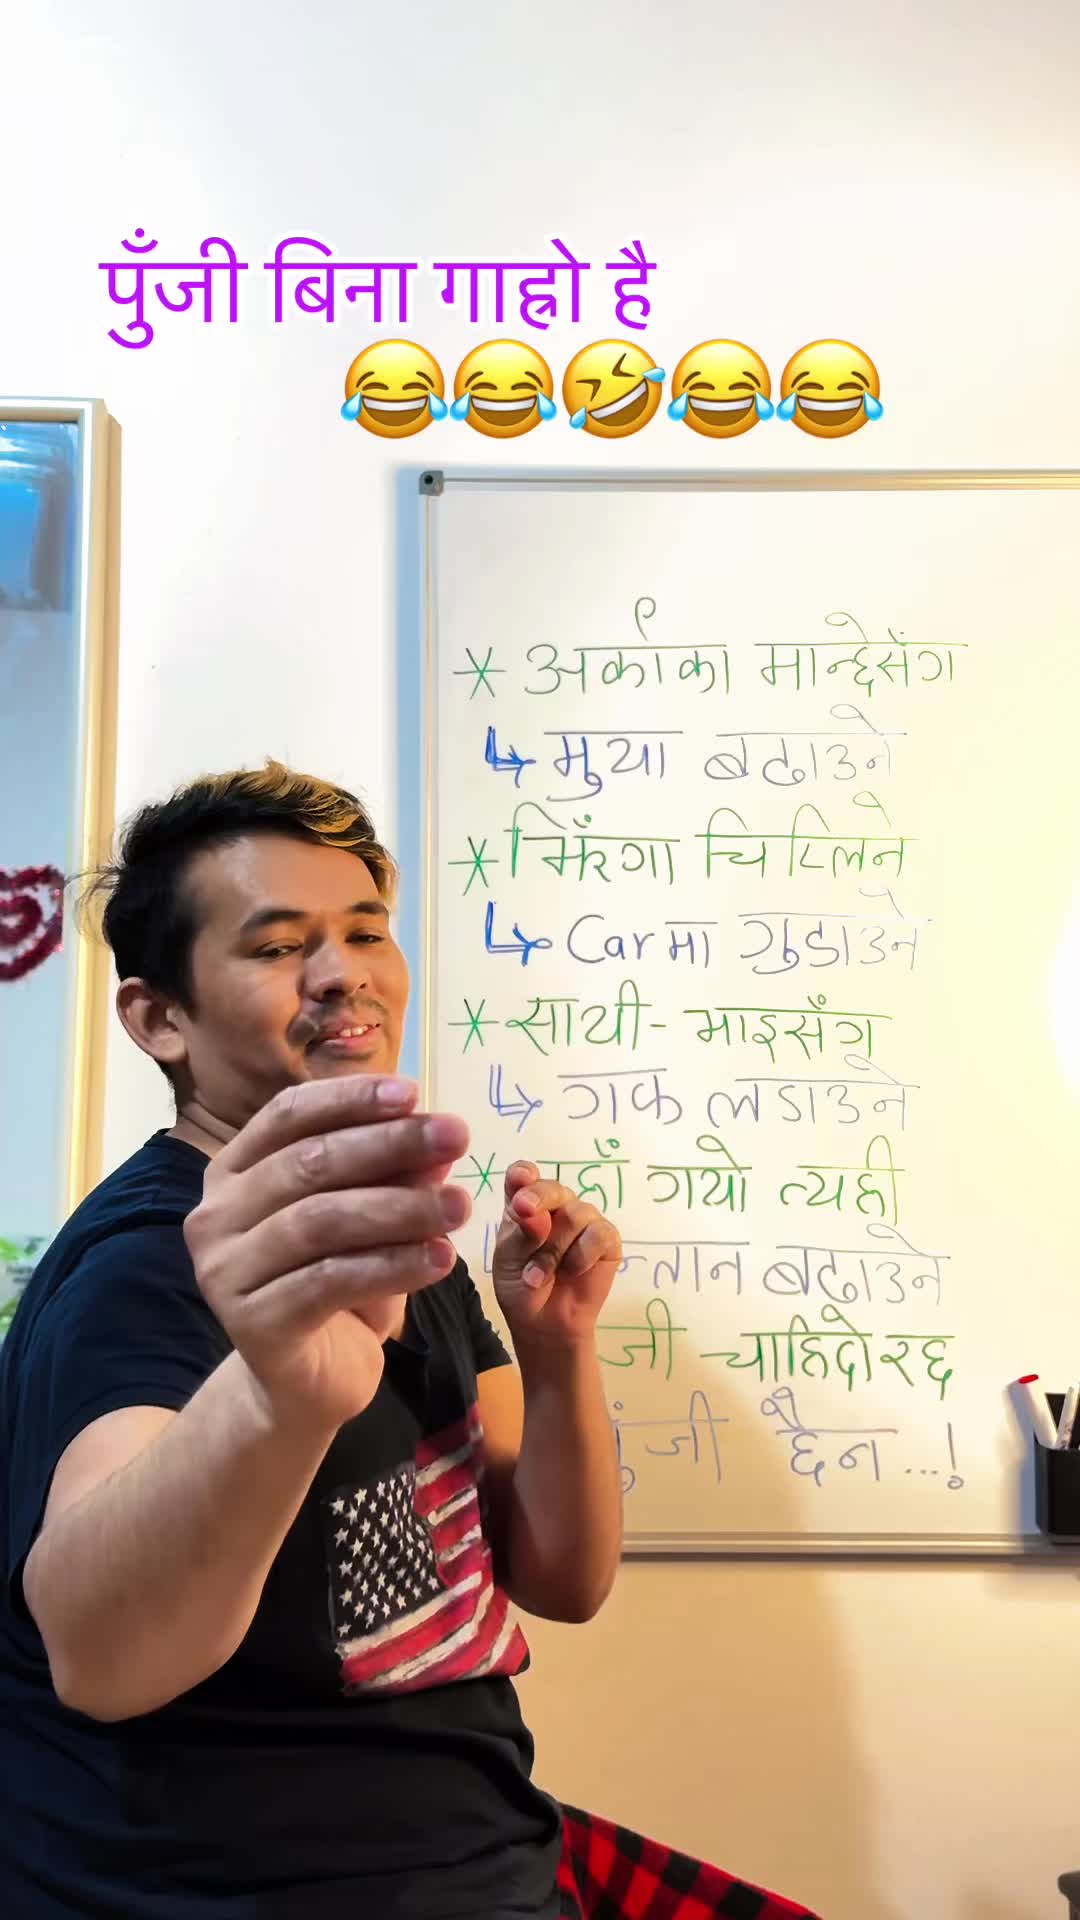 पुँजी बिना गाह्रो है
😂😂🤣😂😂
* अर्काका मान्छेसँग
↳ मुया बढाउने
* झिँगा चिप्लिने
↳ Car मा गुडाउने
* साथी-भाइसँग
↳ गफ लडाउने
* गयो त्यही
बढाउने
चाहिदोरहछ
पुंजी छैन...!